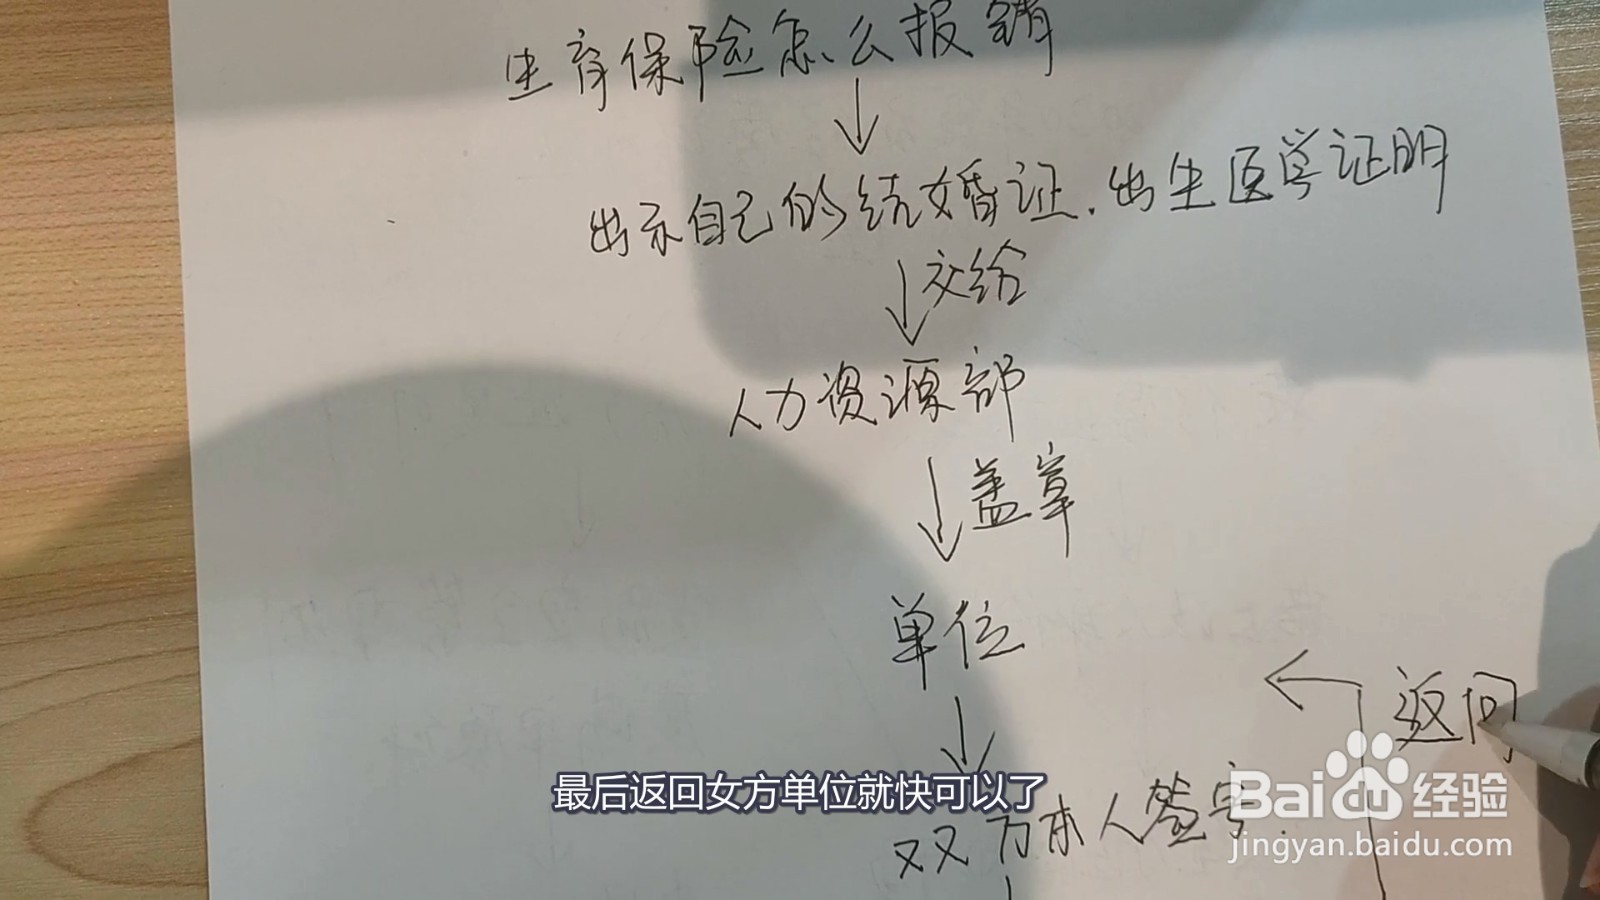 生育保险怎么报销
出示自己的结婚证.出生医学证明
交给
人力资源部
盖章
单位
返回
最后返回女方单位就快可以了
双方本人签字.
Bai 经验
jingyan.baidu.com